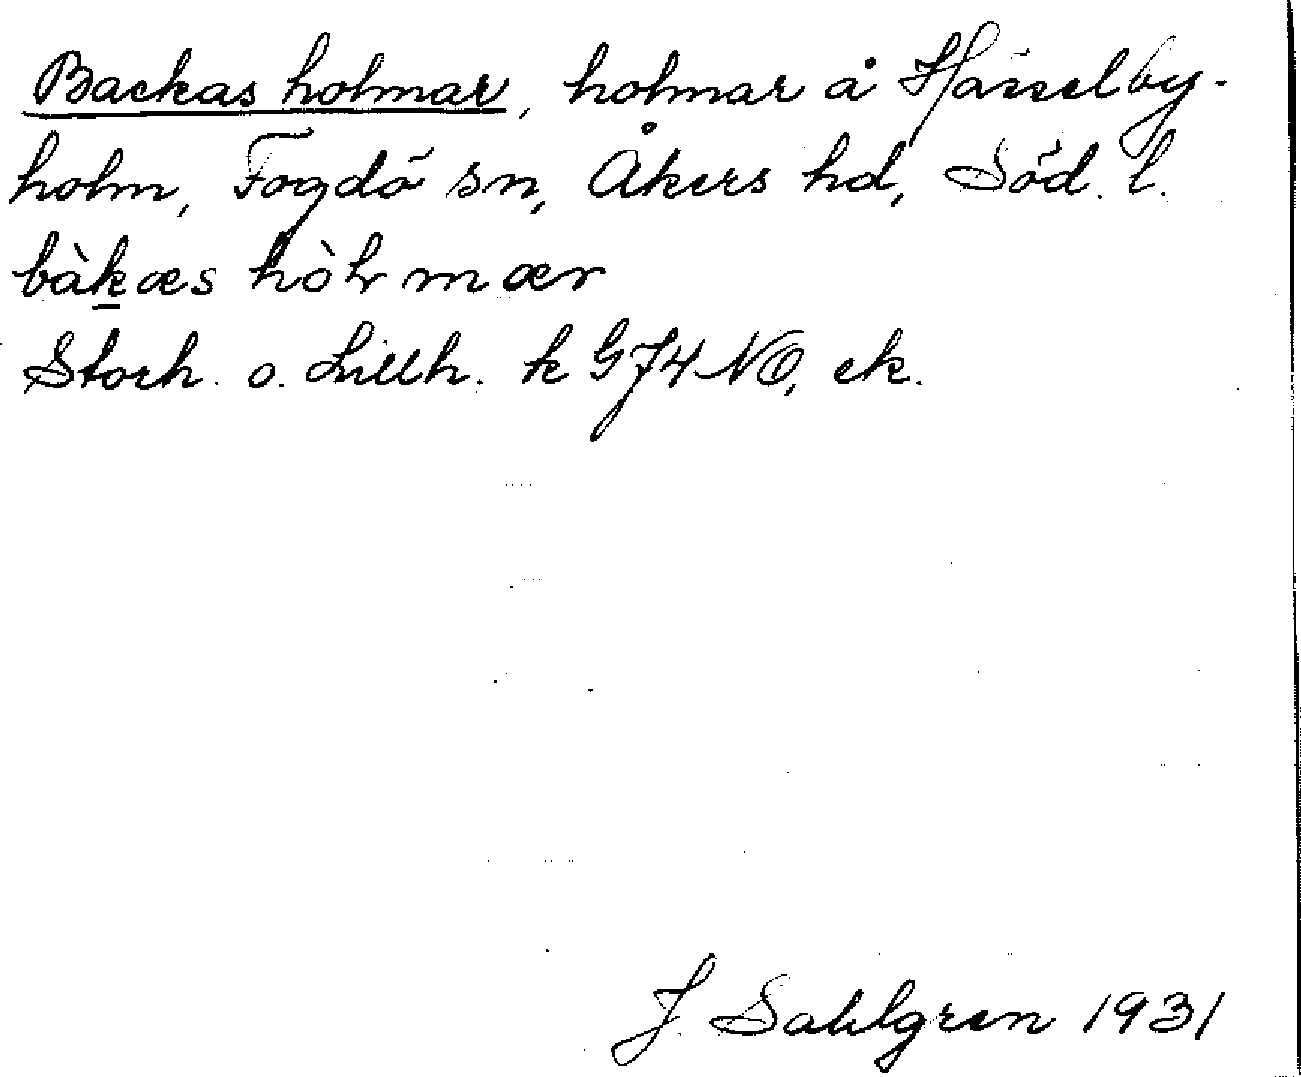 Backas holmar, holmar å Hässelby-
holm, Fogdö sn, Åkers hd, Söd. l.
bàkæs hòlmær
Storh. o. Lillh. k G74 NO, ek.
J. Sahlgren 1931